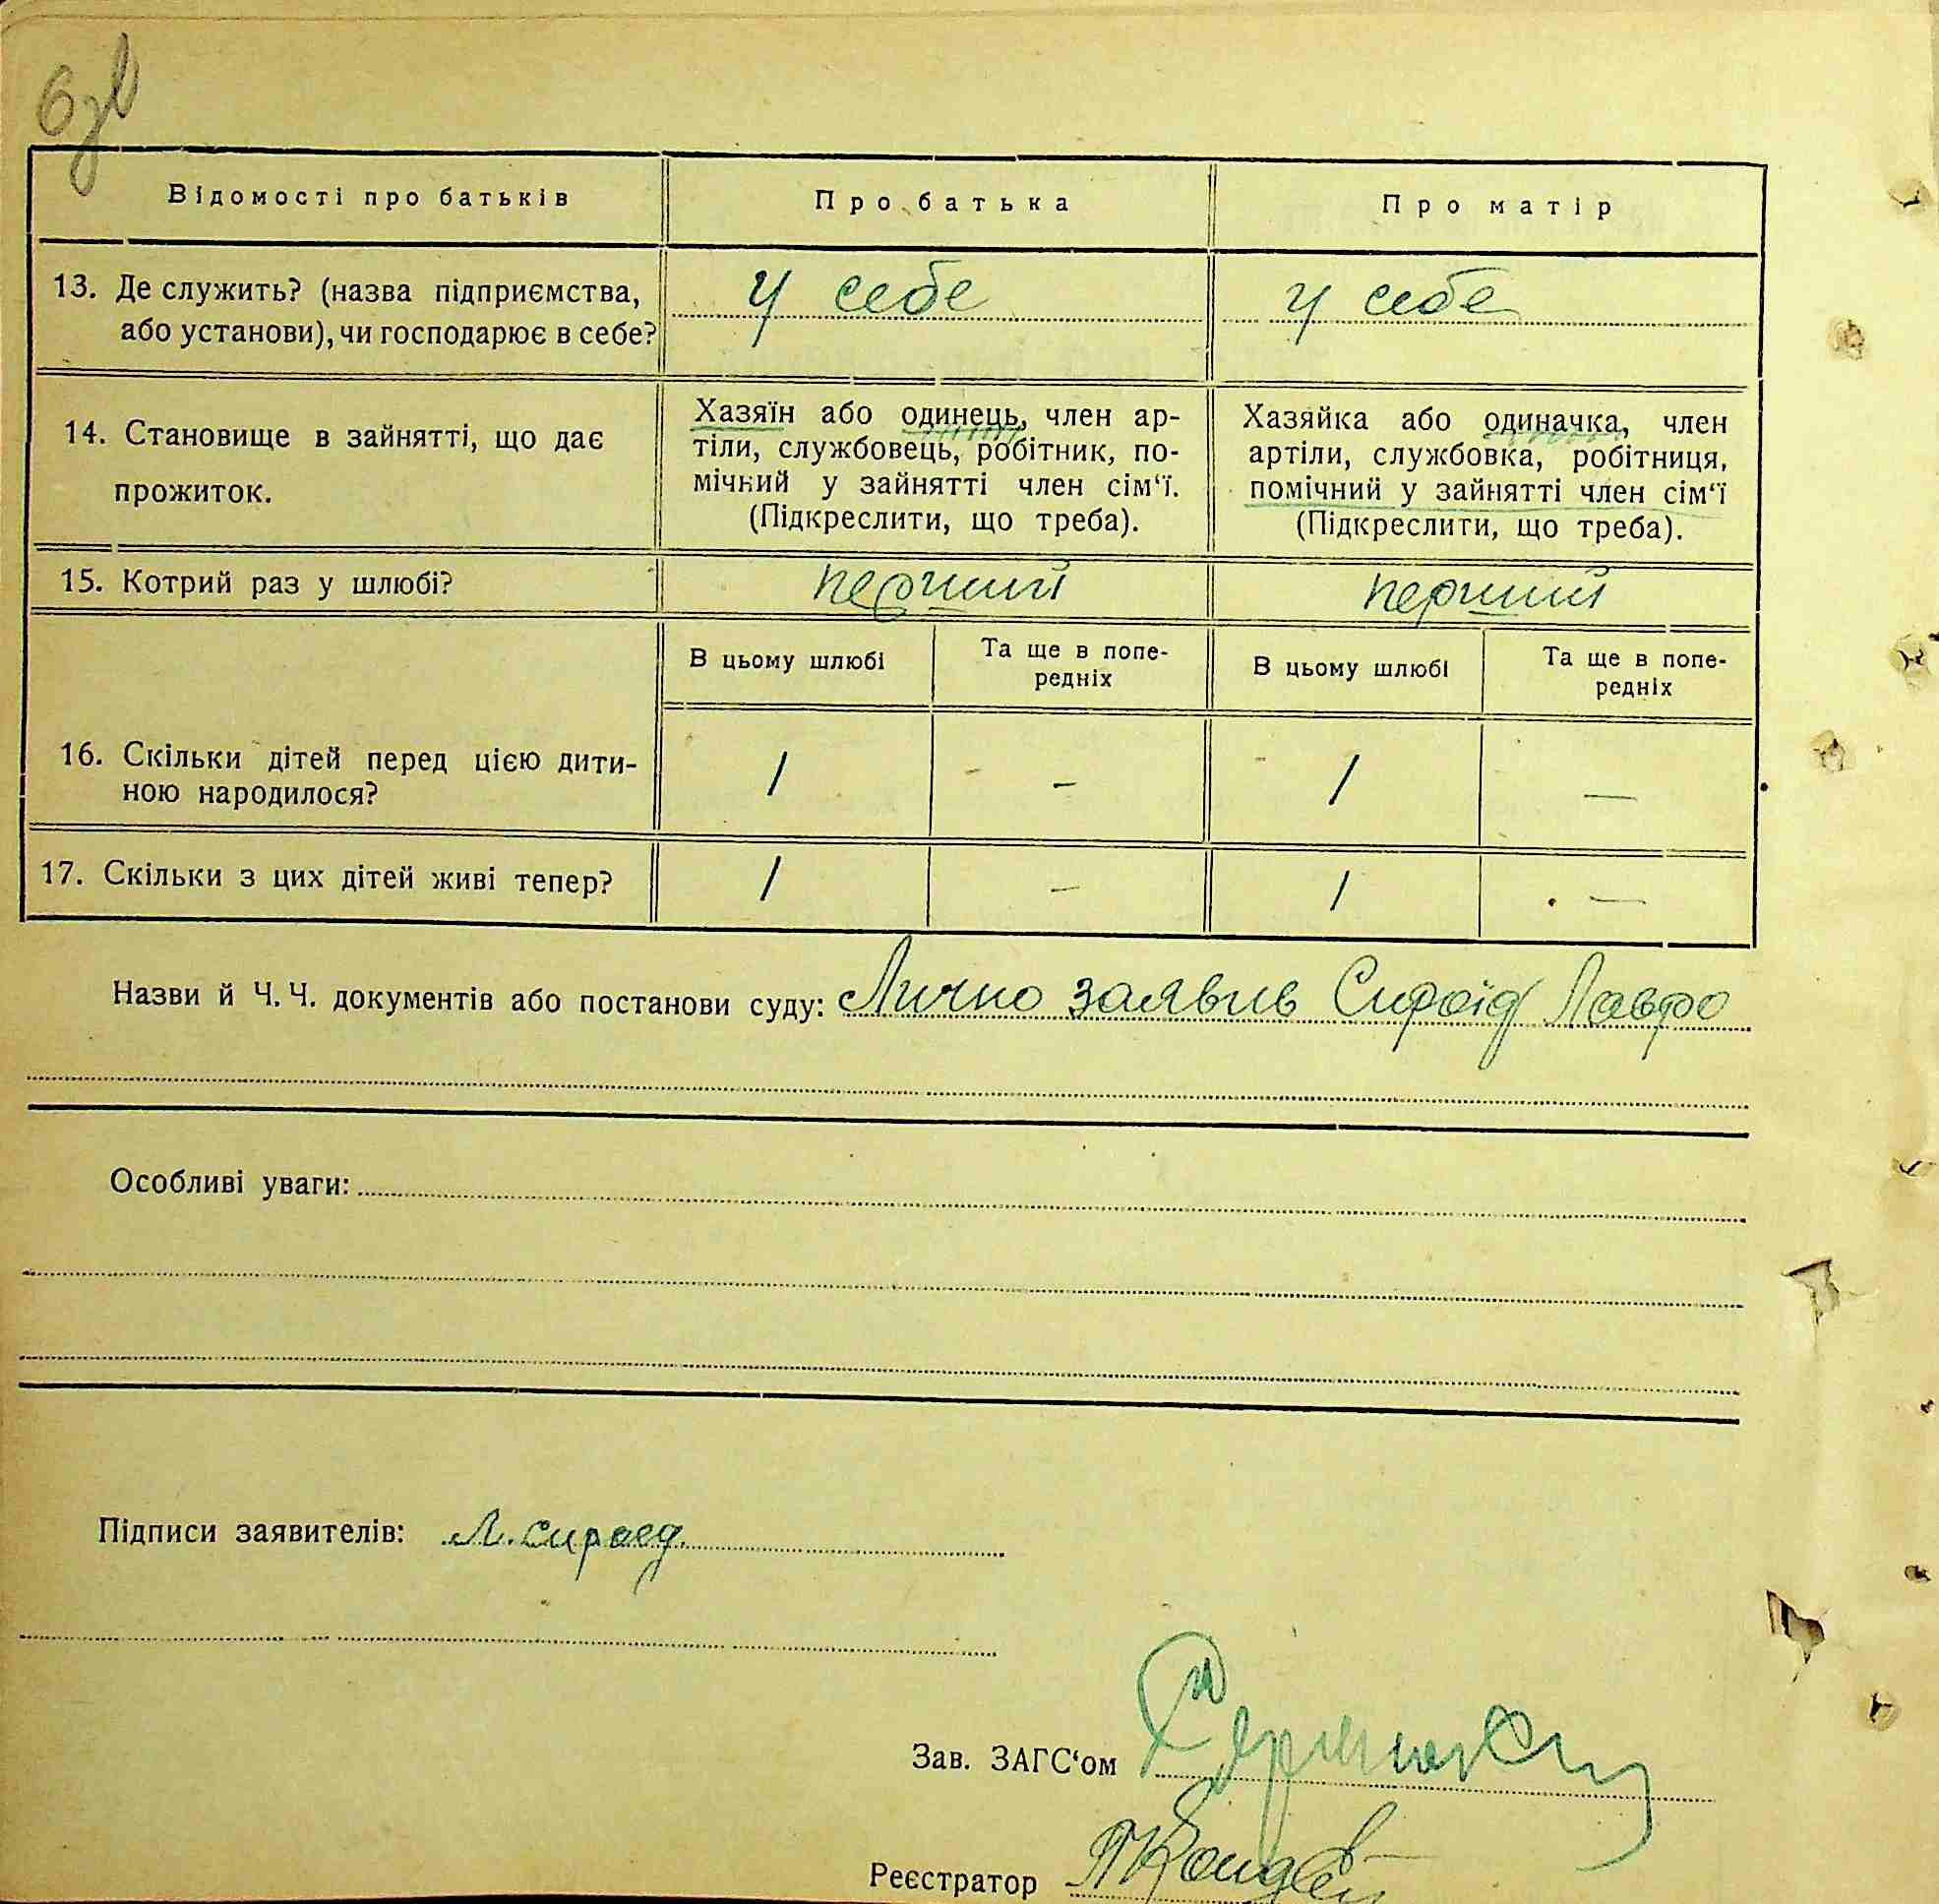 6зв
Відомості про батьків
Про батька
Про матір
13. Де служить? (назва підприємства,
або установи), чи господарює в себе?
у себе
у себе
14. Становище в зайнятті, що дає
прожиток.
Хазяїн або одинець, член ар-
тіли, службовець, робітник, по-
мічний у зайнятті член сім‘ї.
(Підкреслити, що треба).
Хазяйка або одиначка, член
артіли, службовка, робітниця,
помічний у зайнятті член сім‘ї
(Підкреслити, що треба).
15. Котрий раз у шлюбі?
перший
перший
В цьому шлюбі
Та ще в попе-
редніх
В цьому шлюбі
Та ще в попе-
редніх
16. Скільки дітей перед цією дити-
ною народилося?
1
-
1
-
17. Скільки з цих дітей живі тепер?
1
-
1
-
Назви й Ч. Ч. документів або постанови суду: Лично заявив Сироїд Лавро
Особливі уваги:
Підписи заявителів: Л. Сироед
Зав. ЗАГС‘ом
Реєстратор